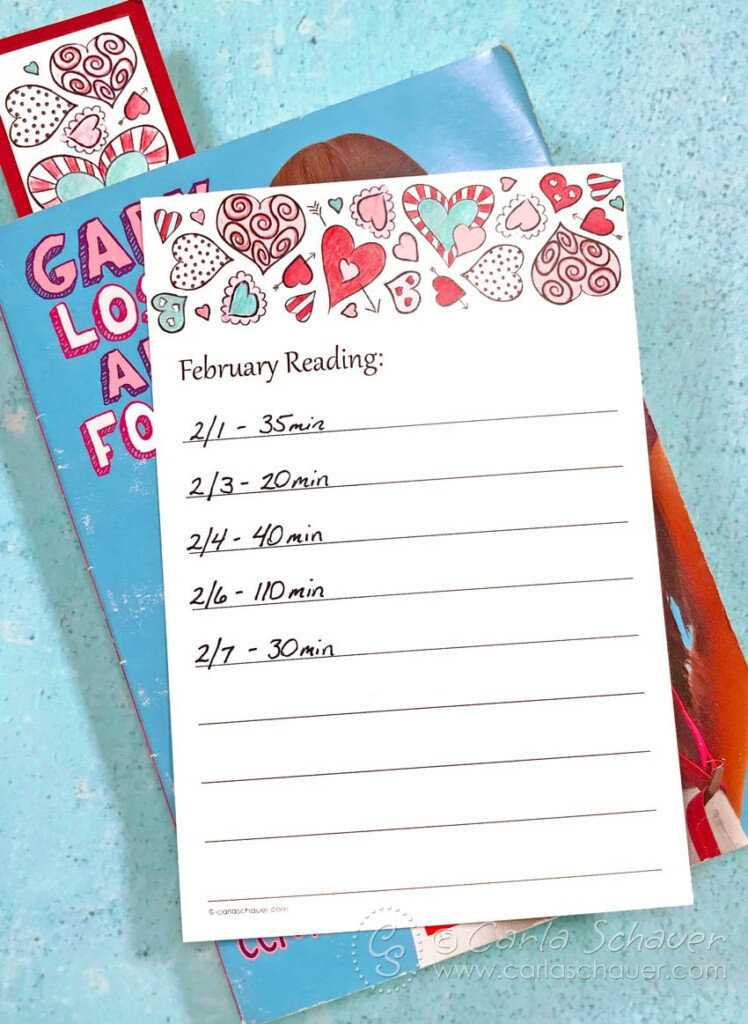 GABY
LOS
A
FO
February Reading:
2/1 - 35min
2/3 - 20min
2/4 - 40min
2/6 - 110min
2/7 - 30min
© carlaschauer.com
CS © Carla Schauer
www.carlaschauer.com